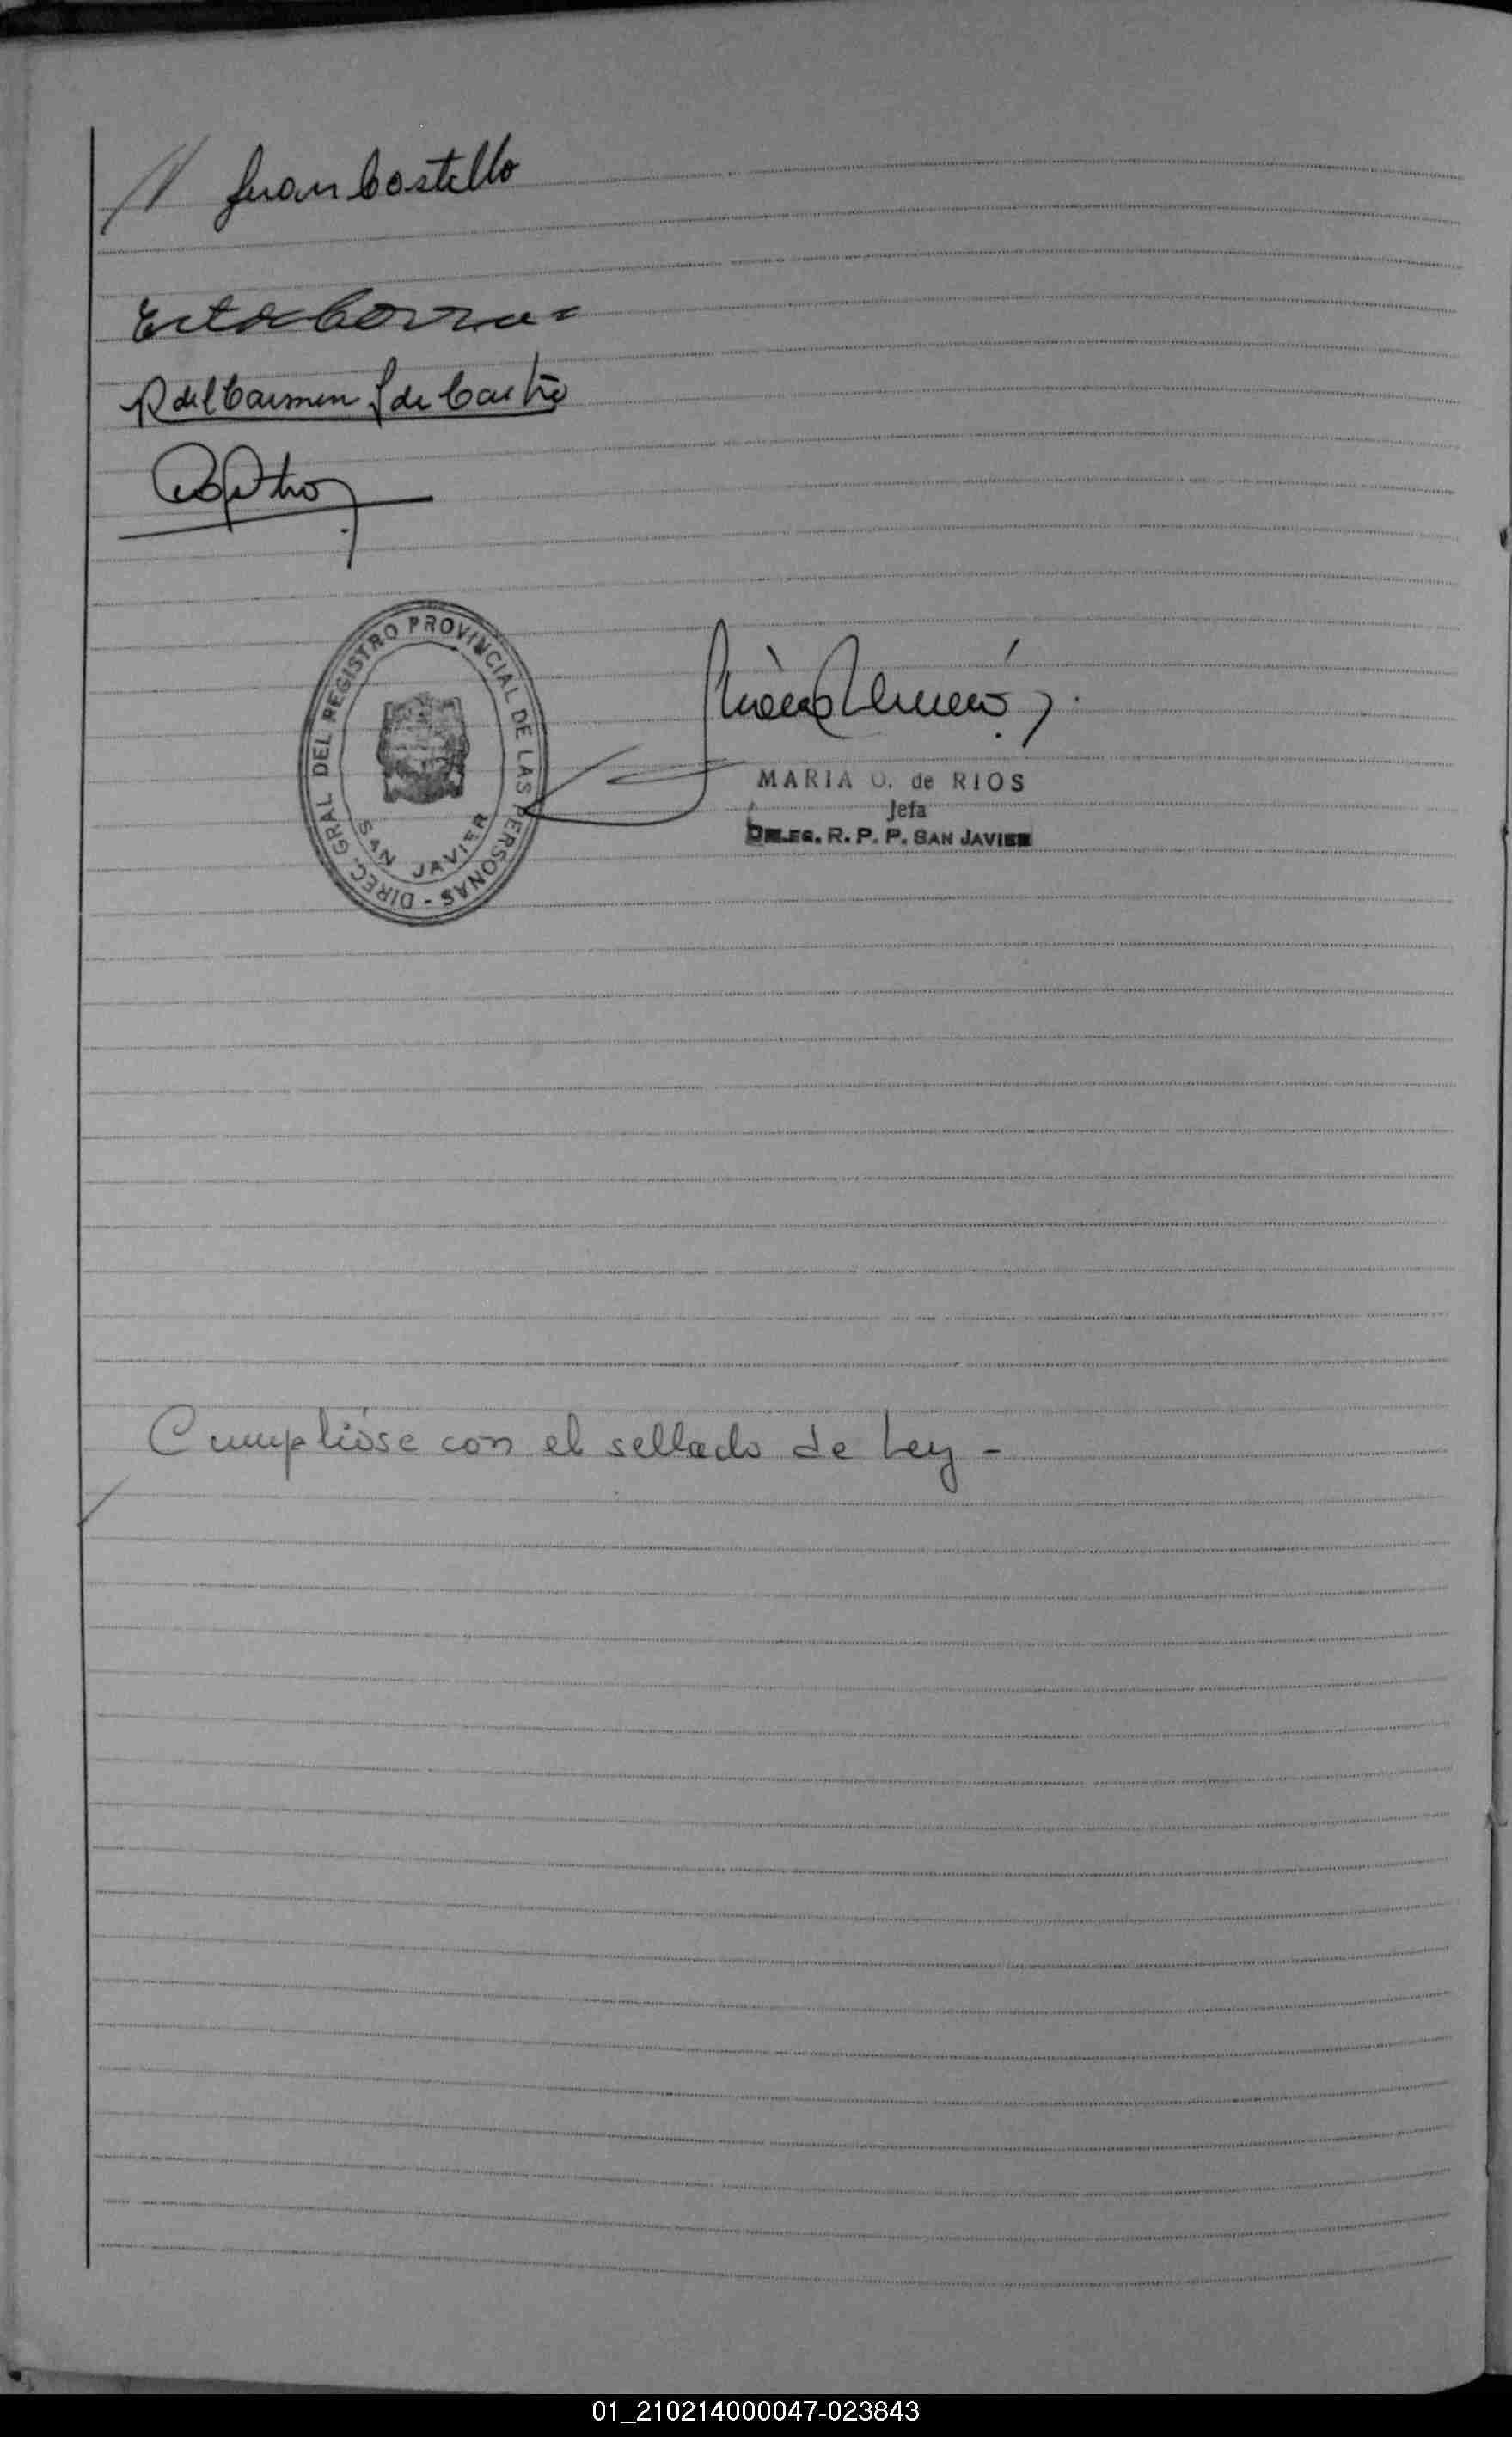 // Juan Castillo
R del Carmen S de Castro
DIREC. GRAL. DEL REGISTRO PROVINCIAL DE LAS PERSONAS -
SAN JAVIER
MARIA O. de RIOS
Jefa
DELEG. R. P. P. SAN JAVIER
Cumplióse con el sellado de Ley -
01_210214000047-023843